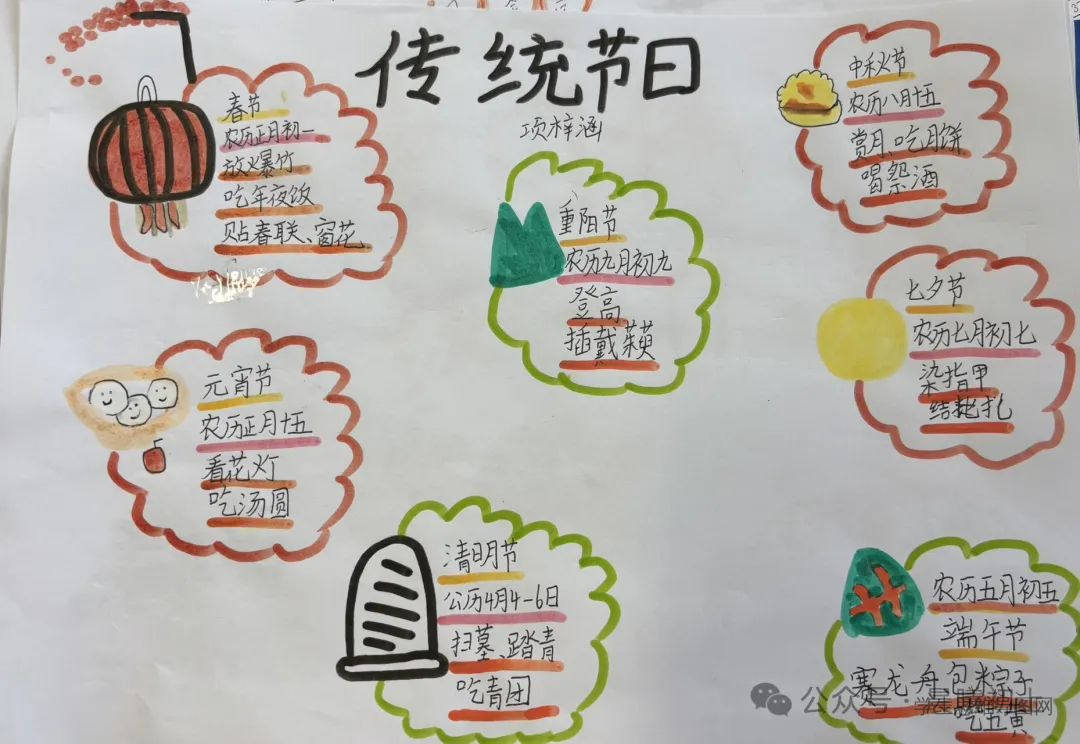 传统节日
项梓涵
春节
农历正月初一
放火爆竹
吃年夜饭
贴春联、窗花
元宵节
农历正月十五
看花灯
吃汤圆
清明节
公历4月4-6日
扫墓、踏青
吃青团
重阳节
农历九月初九
登高
插戴茱萸
中秋节
农历八月十五
赏月、吃月饼
喝祭酒
七夕节
农历七月初七
染指甲
结 扎
农历五月初五
端午节
赛龙舟包米粽子
吃五黄
公众号